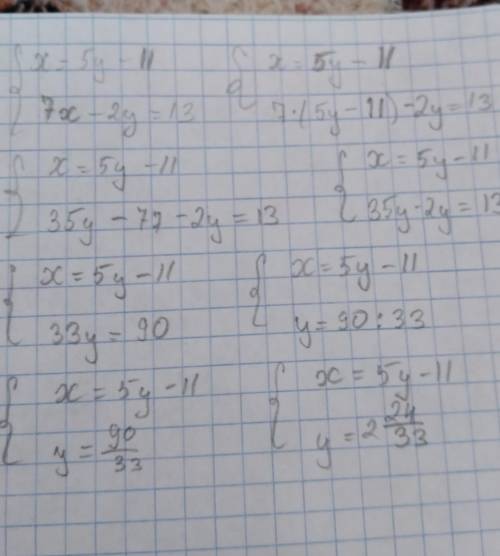 { x = 5y - 11   { x = 5y - 11
7x - 2y = 13   7·(5y - 11) - 2y = 13
{ x = 5y - 11   { x = 5y - 11
35y - 77 - 2y = 13   35y - 2y = 13
{ x = 5y - 11   { x = 5y - 11
33y = 90   y = 90 : 33
{ x = 5y - 11   { x = 5y - 11
y = 90/33   y = 2 24/33